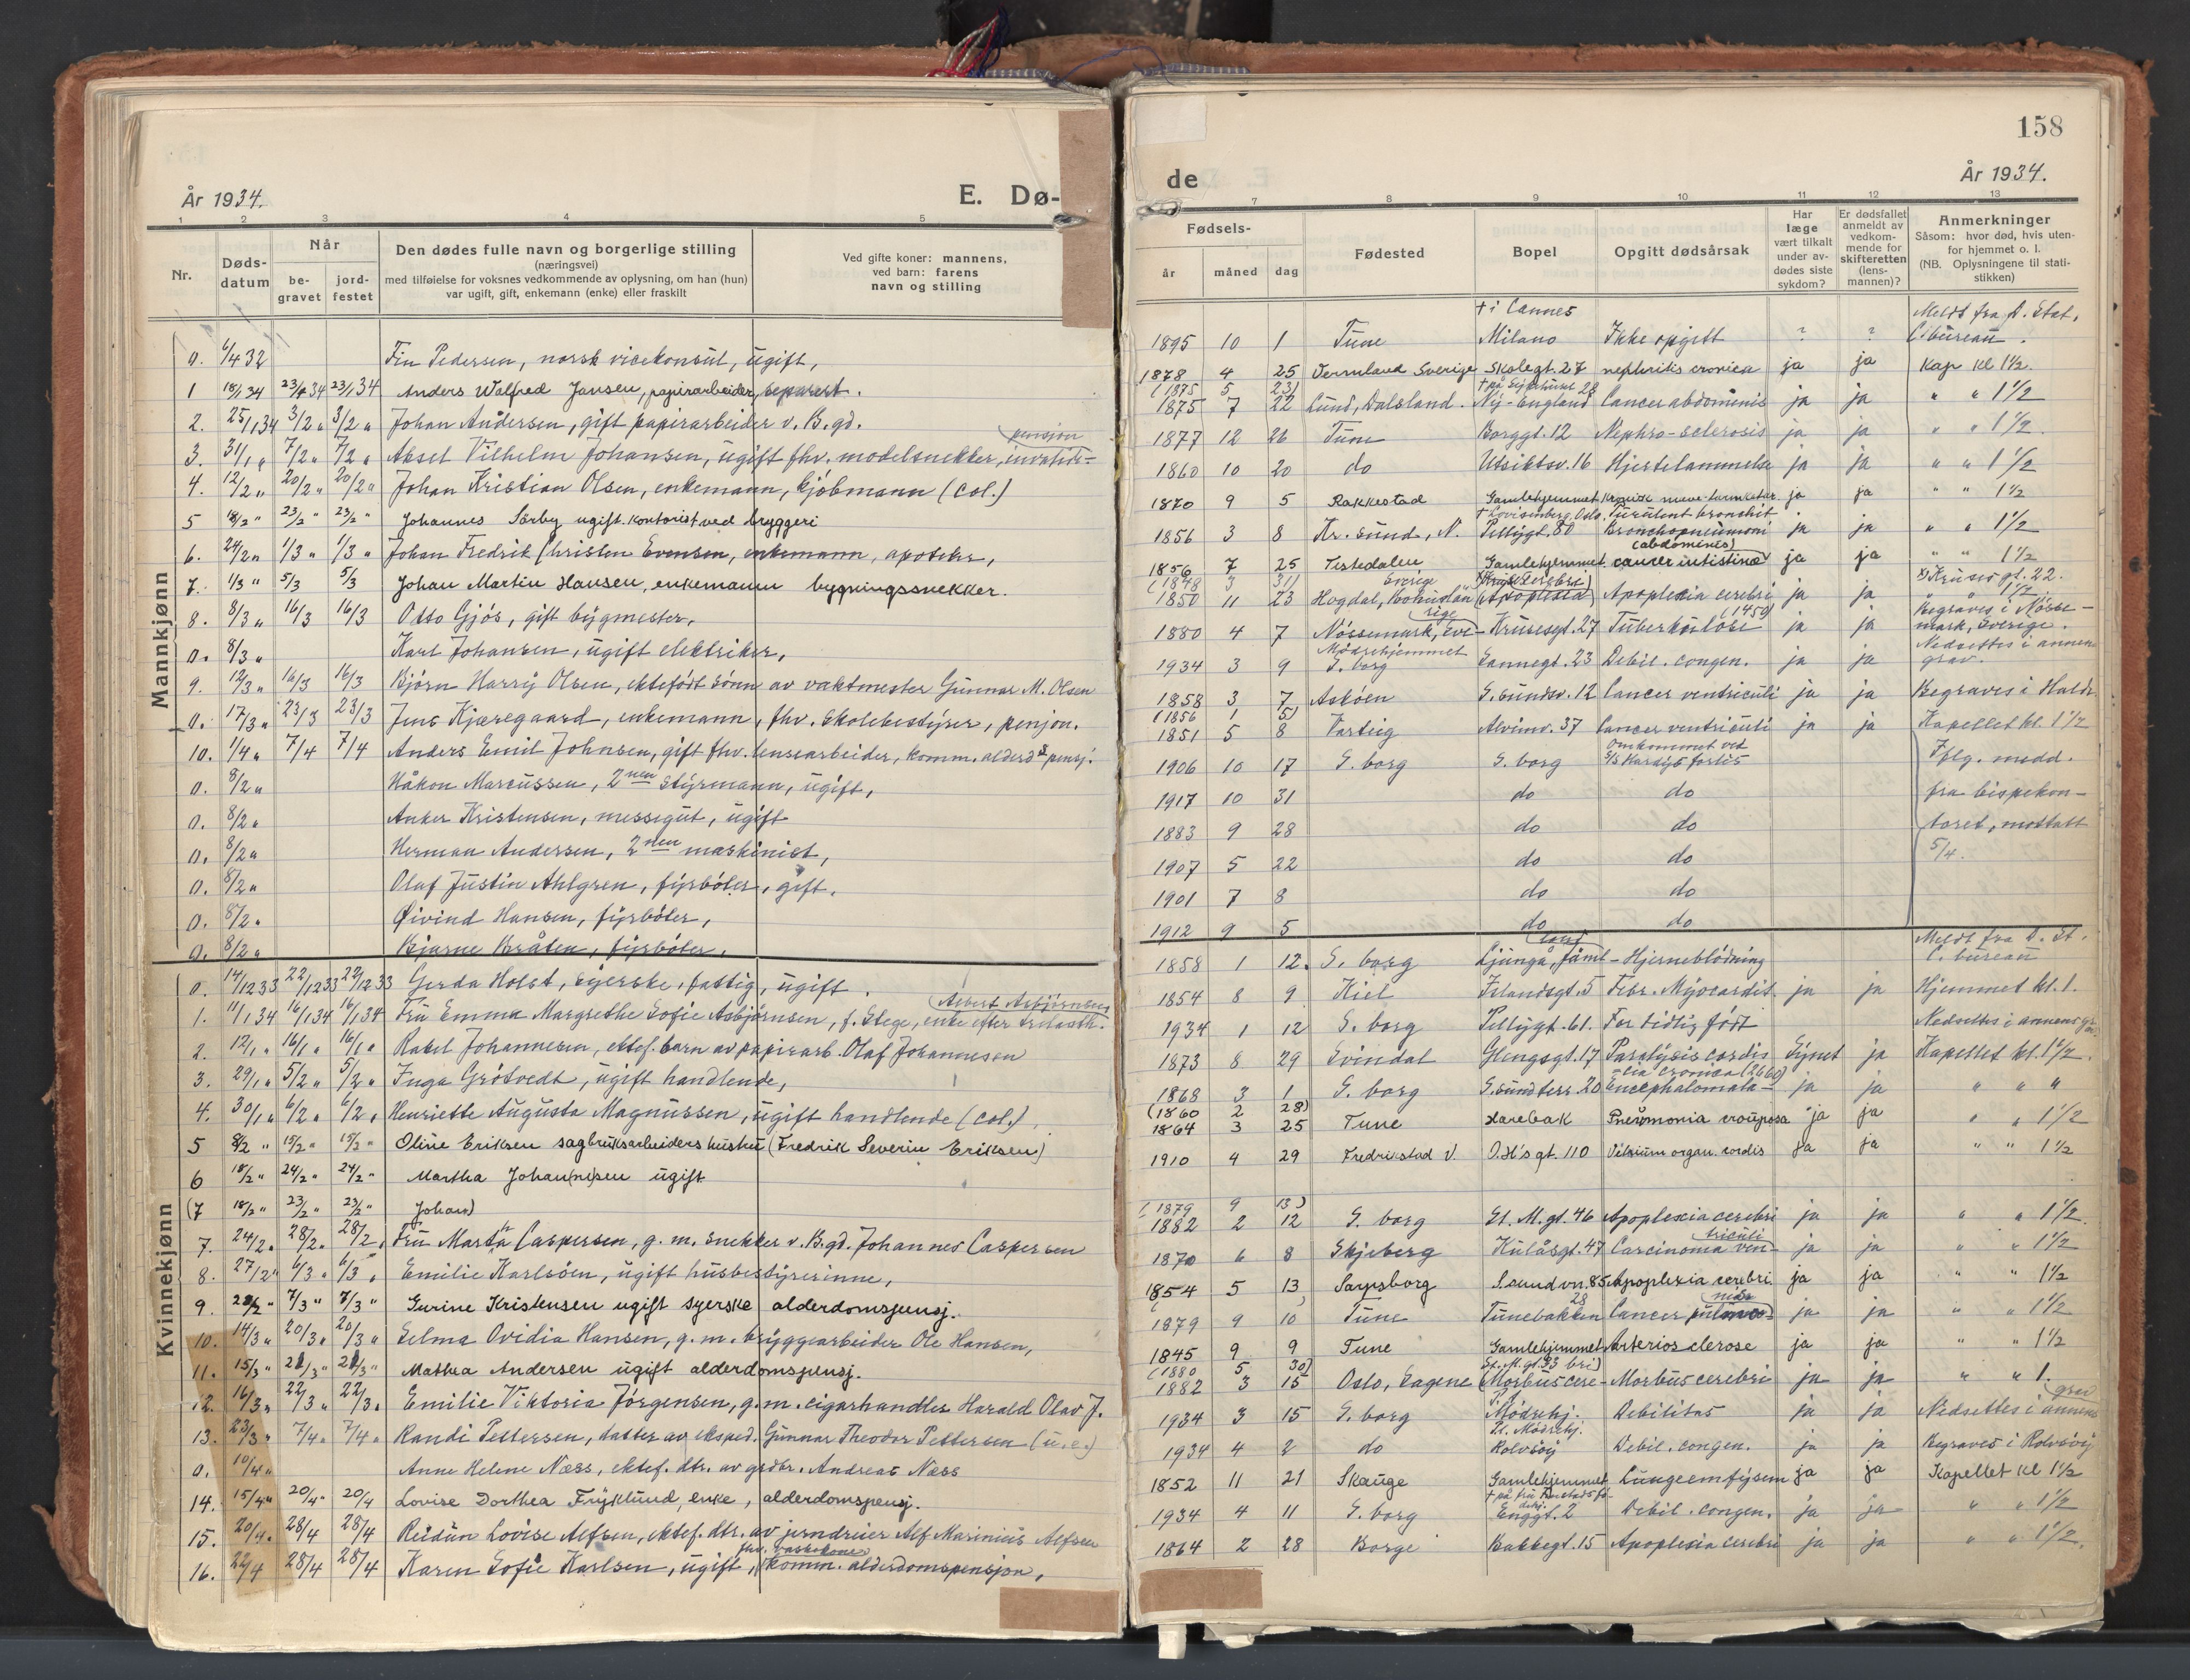 158
År 1934.
E. Dø-
de
År 1934.
1 2 3 4 5
7 8 9 10 11 12 13
Nr.
Døds-
datum
Når
be-
gravet
jord-
festet
Den dødes fulle navn og borgerlige stilling
(næringsvei)
med tilføielse for voksnes vedkommende av oplysning, om han (hun)
var ugift, gift, enkemann (enke) eller fraskilt
Ved gifte koner: mannens,
ved barn: farens
navn og stilling
Fødsels-
år måned dag
Fødested
Bopel
Opgitt dødsårsak
Har
læge
vært tilkalt
under av-
dødes siste
sykdom?
Er dødsfallet
anmeldt av
vedkom-
mende for
skifteretten
(lens-
mannen)?
Anmerkninger
Såsom: hvor død, hvis uten-
for hjemmet o. l.
(NB. Oplysningene til stati-
stikken)
Mannkjønn
0. 6/4 32 Fin Pedersen, norsk vicekonsul, ugift,
1 18/1 34 23/1 34 23/1 34 Anders Walfred Jansen, papirarbeider, separert.
2. 25/1 34 3/2 " 3/2 " Johan Andersen, gift papirarbeider v. B.gd.
pensjon
3. 31/1 " 7/2 " 7/2 " Aksel Vilhelm Johansen, ugift fhv. modelsnekker, invalide-
4. 12/2 " 20/2 " 20/2 " Johan Kristian Olsen, enkemann, kjøbmann (col.)
5 18/2 " 23/2 " 23/2 " Johannes Sørby ugift. kontorist ved bryggeri
6. 24/2 " 1/3 " 1/3 " Johan Fredrik Christen Evensen, enkemann, apoteker,
7. 1/3 " 5/3 5/3 Johan Martin Hansen, enkemann bygningssnekker.
8. 8/3 " 16/3 16/3 Otto Gjøs, gift bygmester,
0. 8/3 " Karl Johansen, ugift elektriker,
9. 12/3 " 16/3 16/3 Bjørn Harry Olsen, ektefødt sønn av vaktmester Gunnar M. Olsen
0. 17/3 " 23/3 23/3 Jens Kjæregaard, enkemann, fhv. skolebestyrer, pensjon.
10. 1/4 " 7/4 7/4 Anders Emil Johnsen, gift fhv. lensearbeider, komm. alderd. pensj.
0. 8/2 " Håkon Marcussen, 2nen styrmann, ugift,
0. 8/2 " Anker Kristensen, messegut, ugift
0. 8/2 " Herman Andersen, 2nen maskinist,
0. 8/2 " Olaf Justin Ahlgren, fyrbøter, gift.
0. 8/2 " Øivind Hansen, fyrbøter,
0. 8/2 " Bjarne Bråten, fyrbøter.
Kvinnekjønn
0. 14/12 33 22/12 33 22/12 33 Gerda Holst, syerske, fattig, ugift.
1. 11/1 34 16/1 34 16/1 34 Frü Emma Margrethe Sofie Asbjørnsen, f. Stege, enke efter
2. 12/1 " 16/1 " 16/1 " Rakel Johannesen, ektef. barn av papirarb. Olaf Johannesen
3. 29/1 " 5/2 " 5/2 " Inga Grøtvedt, ugift handlende,
4. 30/1 " 6/2 " 6/2 " Henriette Augusta Magnussen, ugift handlende (col.)
5 8/2 " 15/2 " 15/2 " Oline Eriksen sagbruksarbeiders hustru (Fredrik Severin Eriksen)
6 18/2 " 24/2 " 24/2 " Martha Johan(ne)sen ugift
(7 18/2 " 23/2 " 23/2 " Johan)
7. 24/2 " 28/2 " 28/2 " Frü Martha Caspersen, g. m. snekker v. B.gd. Johannes Caspersen
8. 27/2 " 6/3 " 6/3 " Emilie Karlsøen, ugift husbestyrerinne,
9. 28/2 " 7/3 " 7/3 " Gurine Kristensen ugift syerske alderdomspensj.
10. 14/3 " 20/3 " 20/3 " Selma Ovidia Hansen, g. m. bryggearbeider Ole Hansen,
11. 15/3 " 21/3 " 21/3 " Mathea Andersen ugift alderdomspensj.
12. 16/3 " 22/3 " 22/3 " Emilie Viktoria Jørgensen, g. m. cigarhandler Harald Olav J.
13. 23/3 " 7/4 " 7/4 " Randi Pettersen, datter av eksped. Gunnar Theodor Pettersen (u.e.)
0. 10/4 " Anne Helene Næss, ektef. dtr. av grdbr. Andreas Næss
14. 15/4 " 20/4 " 20/4 Lovise Dorthea Fryklund, enke, alderdomspensj.
15. 20/4 " 28/4 28/4 Reidun Lovise Alfsen, ektef. dtr. av jerndreier Alf Marinius Alfsen
fhv. vaskekone
16. 22/4 28/4 28/4 Karen Sofie Karlsen, ugift, komm. alderdomspensjon,
† i Cannes Meldt fra d. Stat.
1895 10 1 Tune Milano Ikke opgitt ? ? C. bureau.
1878 4 25 Vermland Sverige Skolegt. 27 nephritis cronica ja ja Kap kl 1½.
(1875 5 23)
1875 7 22 Lund, Dalsland. Ny-England 28 Cancer abdominis ja ja " " 1½
1877 12 26 Tune Borggt. 12 Nephro-sclerosis ja ja " " 1½
1860 10 20 do Utsiktsv. 16 Hjertelammelse ja ja " " 1½
1870 9 5 Rakkestad Gamlehjemmet Kronisk mave-tarmkatar. ja ja " " 1½
† Lovisenberg, Oslo. Purulent bronchit
1856 3 8 Kr. sund, N. Pellygt. 80 Bronchopneumoni ja ja " " 1½
(abdominis)
1856 7 25 Tistedalen Gamlehjemmet cancer intistinæ ja ja " " 1½
(1848 3 31) Sverige Kruses gt. 22.
1850 11 23 Hogdal, Bohuslän (Apoplexia) Apoplexia cerebri ja ja 1½
1880 4 7 Nössemark, Sve-rige Krusesgt. 27 Tuberkulose (1450) ja ja Begraves i Nösse-
mark, Sverige.
Mødrehjemmet
1934 3 9 S. borg Sannegt. 23 Debil. congen. ja ja Nedsettes i annen
grav.
1858 3 7 Askøen G. sundsv. 12 Cancer ventriculi ja ja Begraves i Hald.
(1856 1 5)
1851 5 8 Varteig Alvimv. 37 Cancer ventriculi ja ja Kapellet kl. 1½
Omkommet ved
1906 10 17 S. borg S. borg S/S Sardys forlis Iflg. medd.
1917 10 31 do do fra bispekon-
1883 9 28 do do toret, mottatt
1907 5 22 do do 5/4.
1901 7 8 do do
1912 9 5 do do
Meldt fra d. St.
1858 1 12. S. borg Ljungå, Jämt- Hjerneblødning C. bureau
1854 8 9 Kiel Irlandsgt. 5 Febr. Myocardit. ja ja Hjemmet kl. 1.
1934 1 12 S. borg Pellygt. 61. For tidlig født Nedsettes i annens
1873 8 29 Svindal Glengsgt. 17 Paralysis cordis Synet ja Kapellet kl. 1½.
-cia cronica (2660)
1868 3 1 S. borg G. sund terr. 20 Encephalomala- ja ja " " "
(1860 2 28)
1864 3 25 Tune Harebak Pneumonia crouposa ja ja " " 1½
1910 4 29 Fredrikstad V. O.H's gt. 110 Vitium organ. cordis ja ja " " 1½
(1879 9 13)
1882 2 12 S. borg St. M. gt. 46 Apoplexia cerebri ja ja " " 1½
triculi
1870 6 8 Skjeberg Kulåsgt. 47 Carcinoma ven- ja ja " " 1½
1854 5 13 Sarpsborg S. sundvn. 85 Apoplexia cerebri ja ja " " 1½
1879 9 10 Tune Tunebakken 28 Cancer ja ja " " 1½
1845 9 9 Tune Gamlehjemmet Arteriosclerose ja ja " " 1½
(1880 5 30) St. M. gt. 33 bri)
1882 3 15 Oslo, Sagene (Morbus cere- Morbus cerebri ja ja " " 1.
grav
1934 3 15 S. borg Mødrehj. Debilitas ja ja Nedsettes i annen
Pl. Mødrehj.
1934 4 2 do Rolvsøy Debil. congen. ja ja Begraves i Rolvsøy
1852 11 21 Skauge Gamlehjemmet Lungeemfysem ja ja Kapellet kl 1½
1934 4 11 S. borg Enggt. 2 Debil. congen. ja ja " " 1½
1864 2 28 Borge Bakkegt. 15 Apoplexia cerebri ja ja " " 1½.